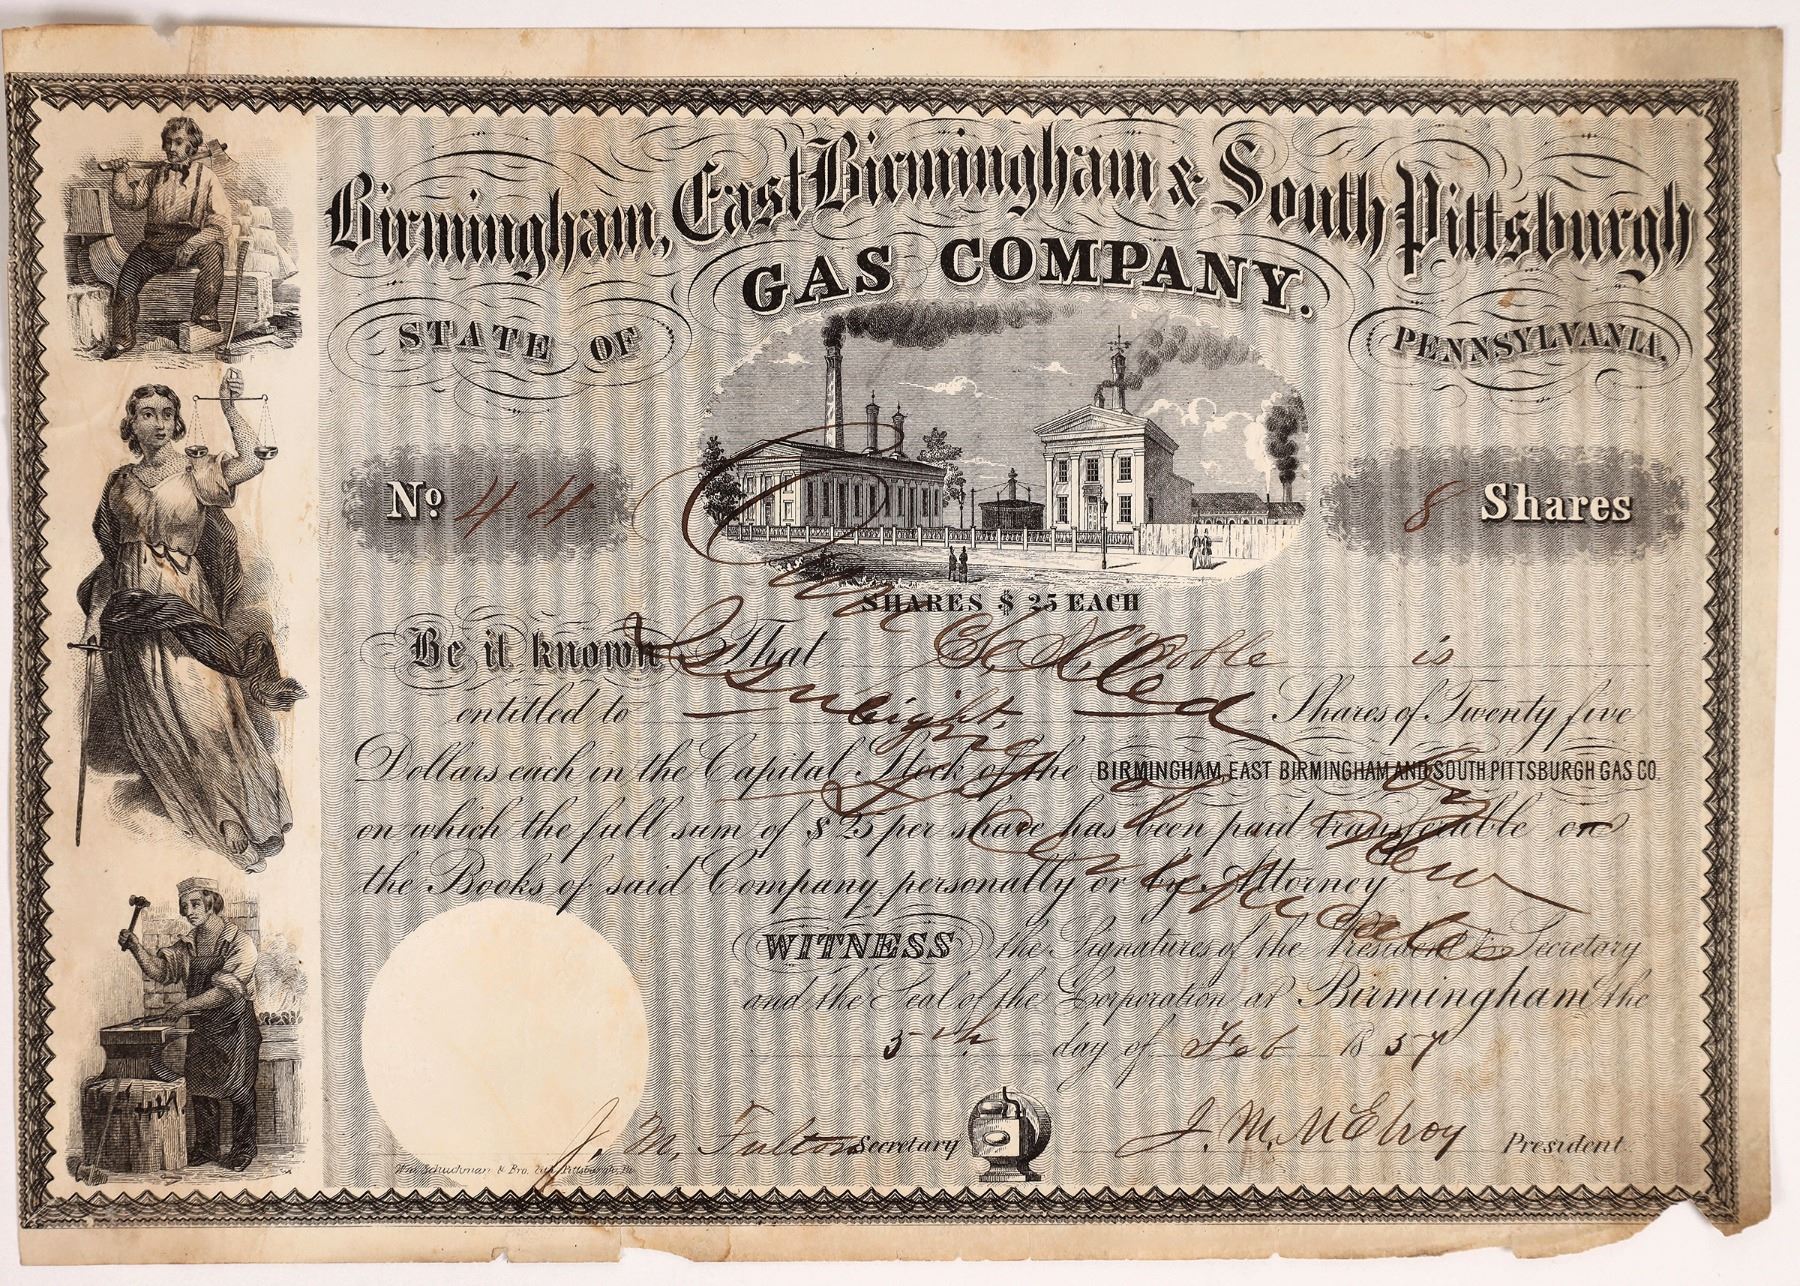 Birmingham, East Birmingham & South Pittsburgh
GAS COMPANY.
STATE OF PENNSYLVANIA.
No. 44 8 Shares
SHARES $ 25 EACH
Be it known That is
entitled to Eight Shares of Twenty five
Dollars each in the Capital Stock of the BIRMINGHAM, EAST BIRMINGHAM AND SOUTH PITTSBURGH GAS CO.
on which the full sum of $ 25 per share has been paid transferible on
the Books of said Company personally or by Attorney
WITNESS the Signatures of the President & Secretary
and the Seal of the Corporation at Birmingham the
5th day of Feb 1857
J. M. Fulton Secretary J. M. McElroy President.
Wm. Schuchman & Bro. Lith. Pittsburgh, Pa.
Cancelled
by
New
Certificate